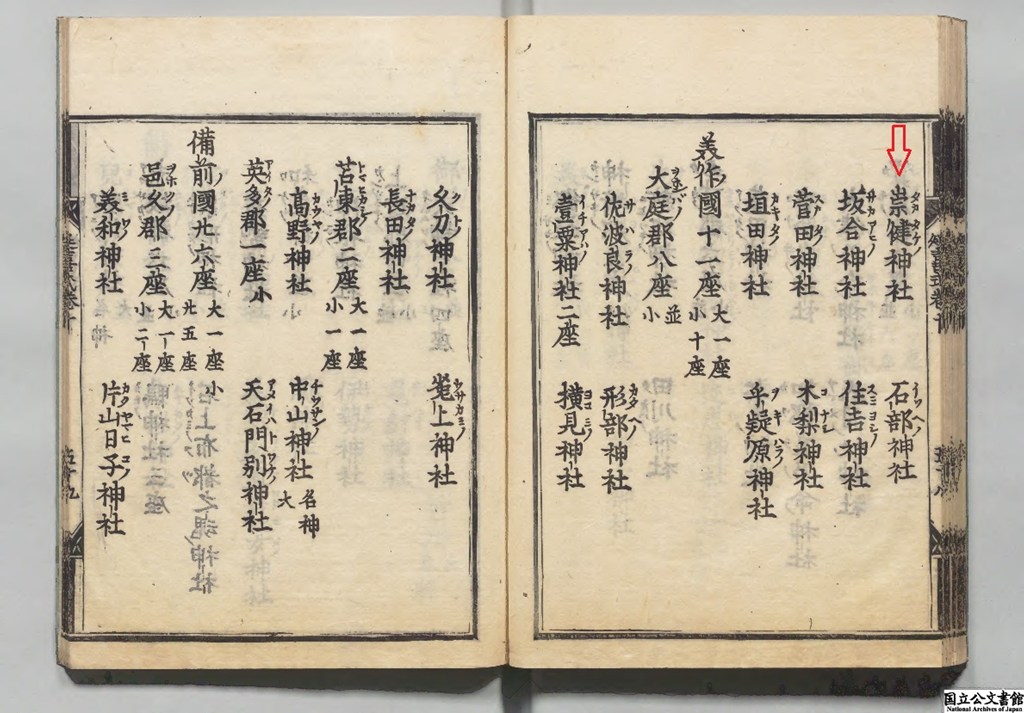 崇健神社 石部神社
坂合神社 住吉神社
菅田神社 木梨神社
垣田神社 乎疑原神社
美作國十一座 大一座 小十座
大庭郡八座 並小
佐波良神社 形部神社
壹粟神社二座 横見神社
久刀神社 兎上神社
長田神社
苫東郡二座 大一座 小一座
高野神社 中山神社 名神大
英多郡一座 小 天石門別神社
備前國廿六座 大一座 廿五座 小
邑久郡三座 大一座 小二座
美和神社 片山日子神社
国立公文書館
National Archives of Japan